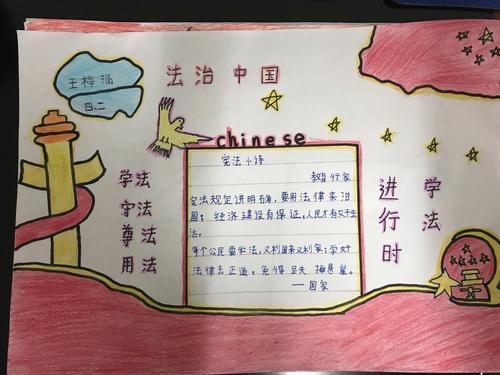 王梓涵
四、二
法治中国
chinese
宪法小诗
教育行家
宪法规定讲明确,要用法律来治
国;经济建设有保证,人民才有好生
活。
每个公民需学法,又利国来又利家;学好
法律去正道,免得足失掉悬崖。
——国家
学法
守法
尊法
用法
学法
进行时